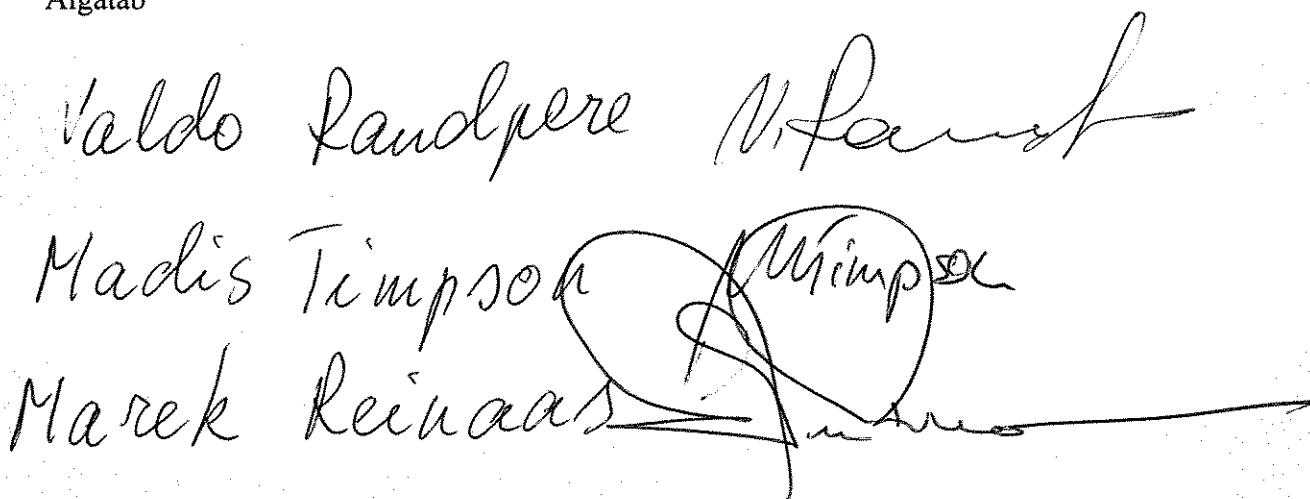 Algatab
Valdo Randpere V. Rand
Madis Timpson MTimpson
Marek Reinaas